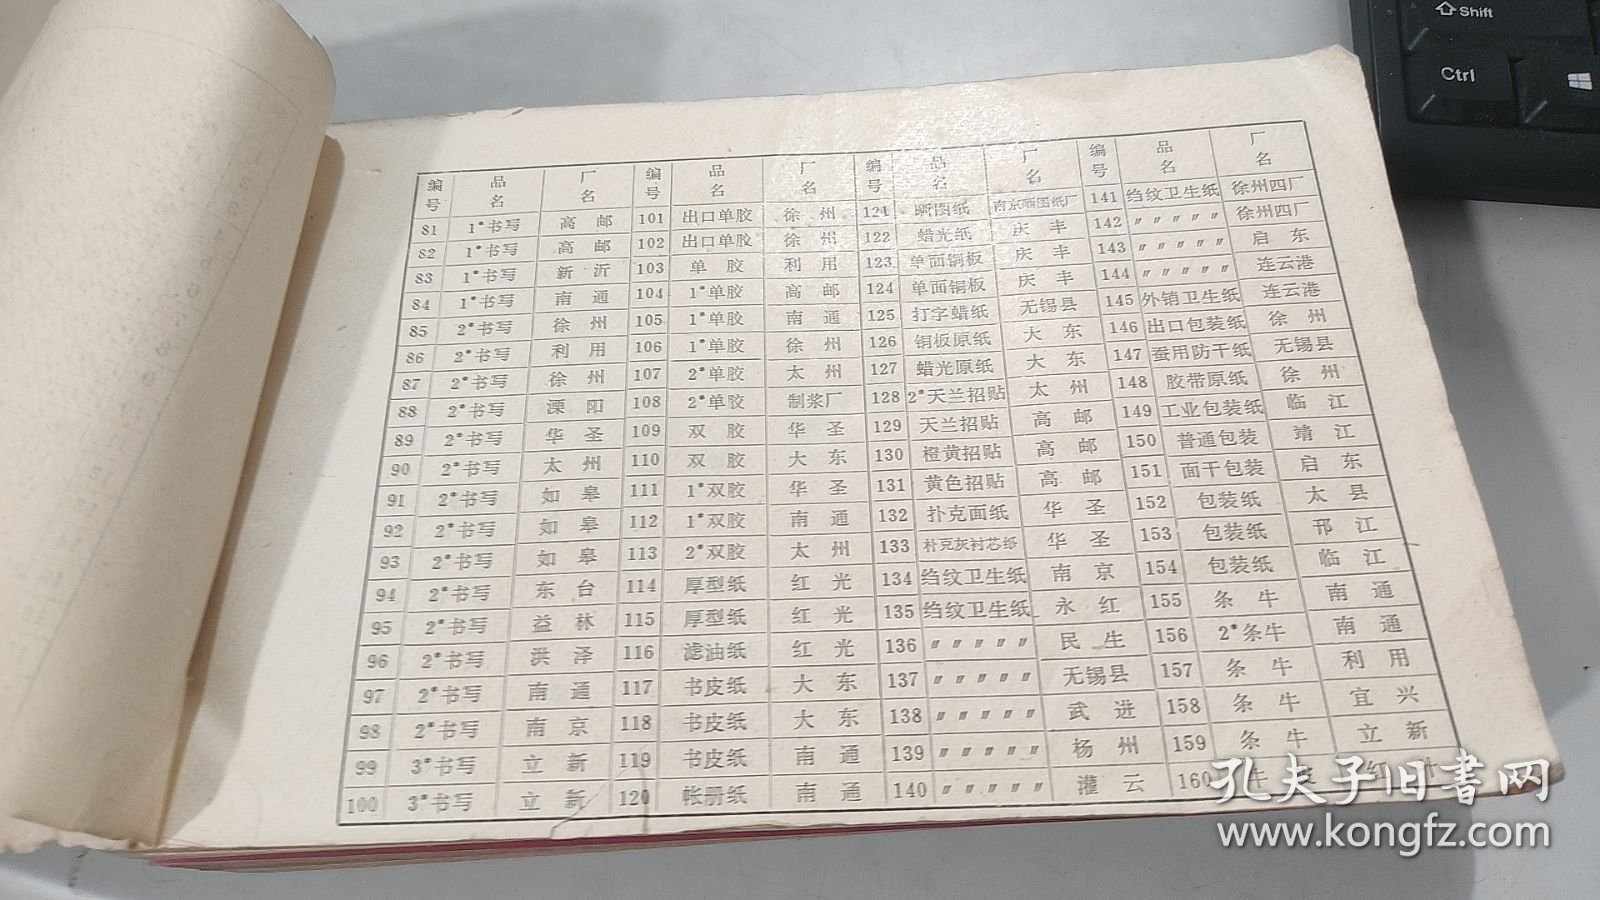 Shift
Ctrl
编号 品名 厂名 编号 品名 厂名 编号 品名 厂名 编号 品名 厂名
81 1#书写 高邮 101 出口单胶 徐州 121 晒图纸 南京晒图纸厂 141 绉纹卫生纸 徐州四厂
82 1#书写 高邮 102 出口单胶 徐州 122 蜡光纸 庆丰 142 〃〃〃〃〃 徐州四厂
83 1#书写 新沂 103 单胶 利用 123 单面铜板 庆丰 143 〃〃〃〃〃 启东
84 1#书写 南通 104 1#单胶 高邮 124 单面铜板 庆丰 144 〃〃〃〃〃 连云港
85 2#书写 徐州 105 1#单胶 南通 125 打字蜡纸 无锡县 145 外销卫生纸 连云港
86 2#书写 利用 106 1#单胶 徐州 126 铜板原纸 大东 146 出口包装纸 徐州
87 2#书写 徐州 107 2#单胶 太州 127 蜡光原纸 大东 147 蚕用防干纸 无锡县
88 2#书写 溧阳 108 2#单胶 制浆厂 128 2#天兰招贴 太州 148 胶带原纸 徐州
89 2#书写 华圣 109 双胶 华圣 129 天兰招贴 高邮 149 工业包装纸 临江
90 2#书写 太州 110 双胶 大东 130 橙黄招贴 高邮 150 普通包装 靖江
91 2#书写 如皋 111 1#双胶 华圣 131 黄色招贴 高邮 151 面干包装 启东
92 2#书写 如皋 112 1#双胶 南通 132 扑克面纸 华圣 152 包装纸 太县
93 2#书写 如皋 113 2#双胶 太州 133 朴克灰衬芯纸 华圣 153 包装纸 邗江
94 2#书写 东台 114 厚型纸 红光 134 绉纹卫生纸 南京 154 包装纸 临江
95 2#书写 益林 115 厚型纸 红光 135 绉纹卫生纸 永红 155 条牛 南通
96 2#书写 洪泽 116 滤油纸 红光 136 〃〃〃〃〃 民生 156 2#条牛 南通
97 2#书写 南通 117 书皮纸 大东 137 〃〃〃〃〃 无锡县 157 条牛 利用
98 2#书写 南京 118 书皮纸 大东 138 〃〃〃〃〃 武进 158 条牛 宜兴
99 3#书写 立新 119 书皮纸 南通 139 〃〃〃〃〃 杨州 159 条牛 立新
100 3#书写 立新 120 帐册纸 南通 140 〃〃〃〃〃 灌云 160 牛皮 红叶
孔夫子旧书网
www.kongfz.com